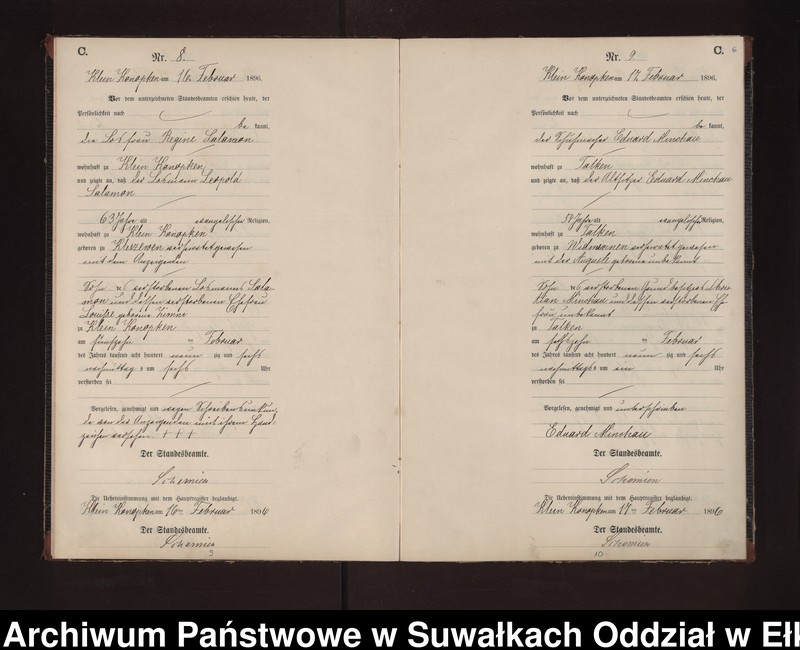 C.
Nr. 8.
Klein Konopken am 16. Februar 1896.
Vor dem unterzeichneten Standesbeamten erschien heute, der
Persönlichkeit nach
be kannt,
die Losfrau Regine Salamon
wohnhaft zu Klein Konopken
und zeigte an, daß der Losmann Leopold
Salamon
63 Jahre alt evangelischer Religion,
wohnhaft zu Klein Konopken
geboren zu verheiratet gewesen
mit dem Anzeigenden
Sohn des verstorbenen Losmannes Sala-
mon und dessen verstorbenen Ehefrau
Louise geborene
zu Klein Konopken
am fünfzehn ten Februar
des Jahres tausend acht hundert neun zig und sechs
nachmittag s um sechs Uhr
verstorben sei
Vorgelesen, genehmigt und wegen Schreibensunkun-
de von der Anzeigenden mit ihrem Hand-
zeichen versehen. + + +
Der Standesbeamte.
Die Uebereinstimmung mit dem Hauptregister beglaubigt.
Klein Konopken am 16ten Februar 1896
Der Standesbeamte.
C. 6
Nr. 9
Klein Konopken am 17. Februar 1896.
Vor dem unterzeichneten Standesbeamten erschien heute, der
Persönlichkeit nach
be kannt,
der Schuhmacher Eduard Minchau
wohnhaft zu Talken
und zeigte an, daß der Altsitzer Eduard Minchau
58 Jahre alt evangelischer Religion,
wohnhaft zu Talken
geboren zu verheiratet gewesen
mit der Auguste geborene unbekannt
Sohn des verstorbenen Grundbesitzers
Minchau und dessen verstorbenen Ehe
frau unbekannt
zu Talken
am sechszehn ten Februar
des Jahres tausend acht hundert neun zig und sechs
nachmittags um ein Uhr
verstorben sei
Vorgelesen, genehmigt und unterschrieben
Eduard Minchau
Der Standesbeamte.
Die Uebereinstimmung mit dem Hauptregister beglaubigt.
Klein Konopken am 17ten Februar 1896
Der Standesbeamte.
10
Archiwum Państwowe w Suwałkach Oddział w Ełk